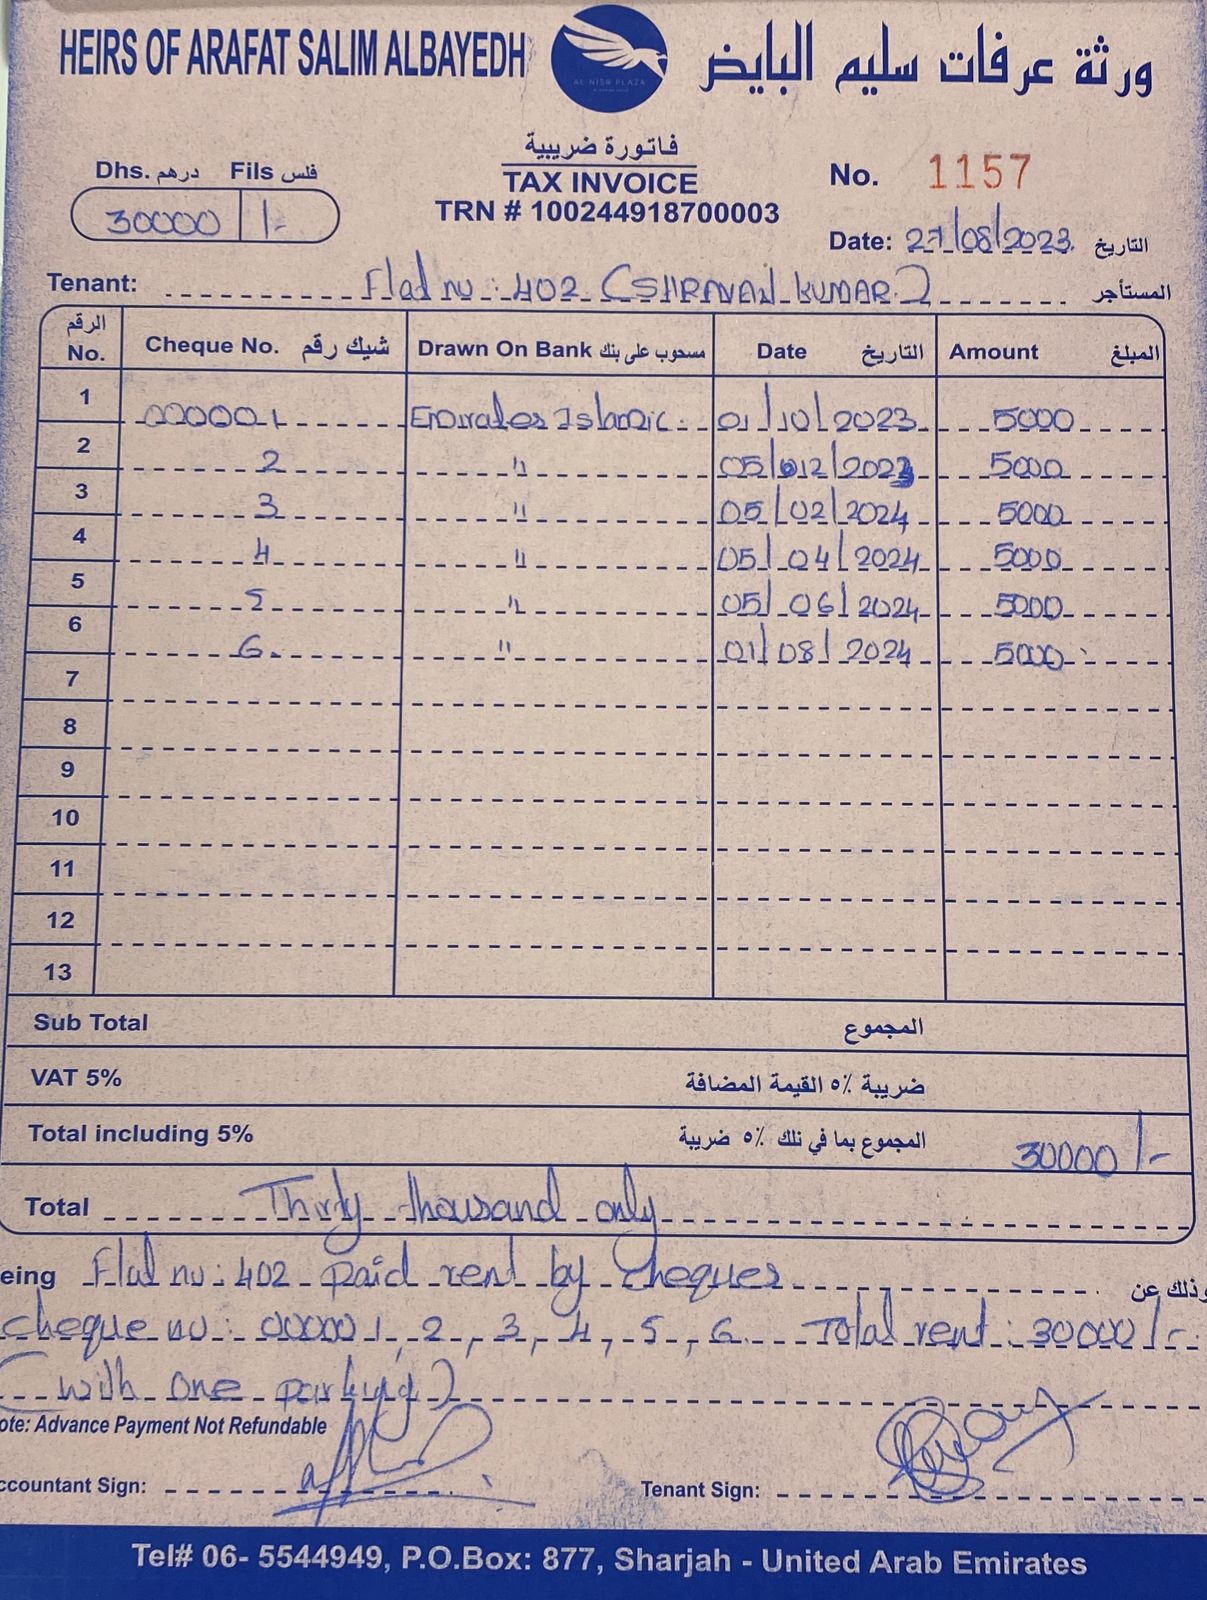 HEIRS OF ARAFAT SALIM ALBAYEDH ورثة عرفات سليم البايض
AL NISR PLAZA
فاتورة ضريبية
TAX INVOICE
TRN # 100244918700003
Dhs. درهم Fils فلس
30000 /-
No. 1157
Date: 27/08/2023 التاريخ
Tenant: Flat no: 402 (SHRAVAN KUMAR) المستأجر
الرقم No. Cheque No. شيك رقم Drawn On Bank مسحوب على بنك Date التاريخ Amount المبلغ
1 000001 Emirates Islamic 01/10/2023 5000
2 2 " 05/12/2023 5000
3 3 " 05/02/2024 5000
4 4 " 05/04/2024 5000
5 5 " 05/06/2024 5000
6 6 " 01/08/2024 5000
7
8
9
10
11
12
13
Sub Total المجموع
VAT 5% ضريبة ٥٪ القيمة المضافة
Total including 5% المجموع بما في ذلك ٥٪ ضريبة 30000/-
Total Thirty thousand only
eing Flat no: 402 paid rent by cheques وذلك عن
cheque no: 000001, 2, 3, 4, 5, 6 Total rent: 30000/-
(with one parking)
ote: Advance Payment Not Refundable
ccountant Sign: Tenant Sign:
Tel# 06- 5544949, P.O.Box: 877, Sharjah - United Arab Emirates